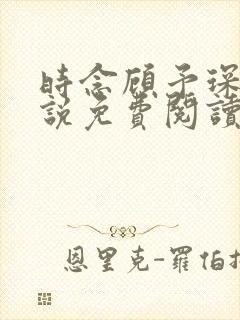 時念顧予琛
說免費閱讀
恩里克-羅伯托